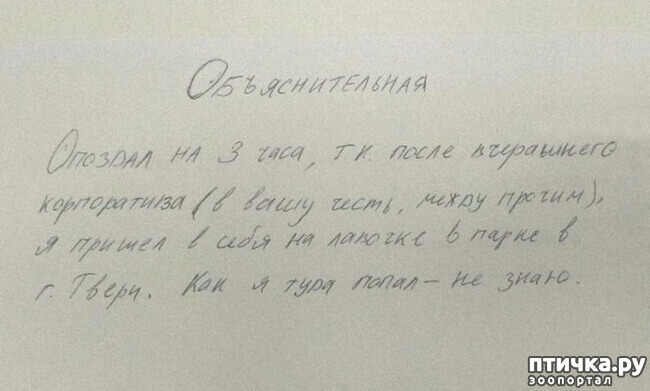 Объяснительная
Опоздал на 3 часа, т.к. после вчерашнего
корпоратива (в вашу честь, между прочим),
я пришел в себя на лавочке в парке в
г. Твери. Как я туда попал – не знаю.
птичка.ру
зоопортал